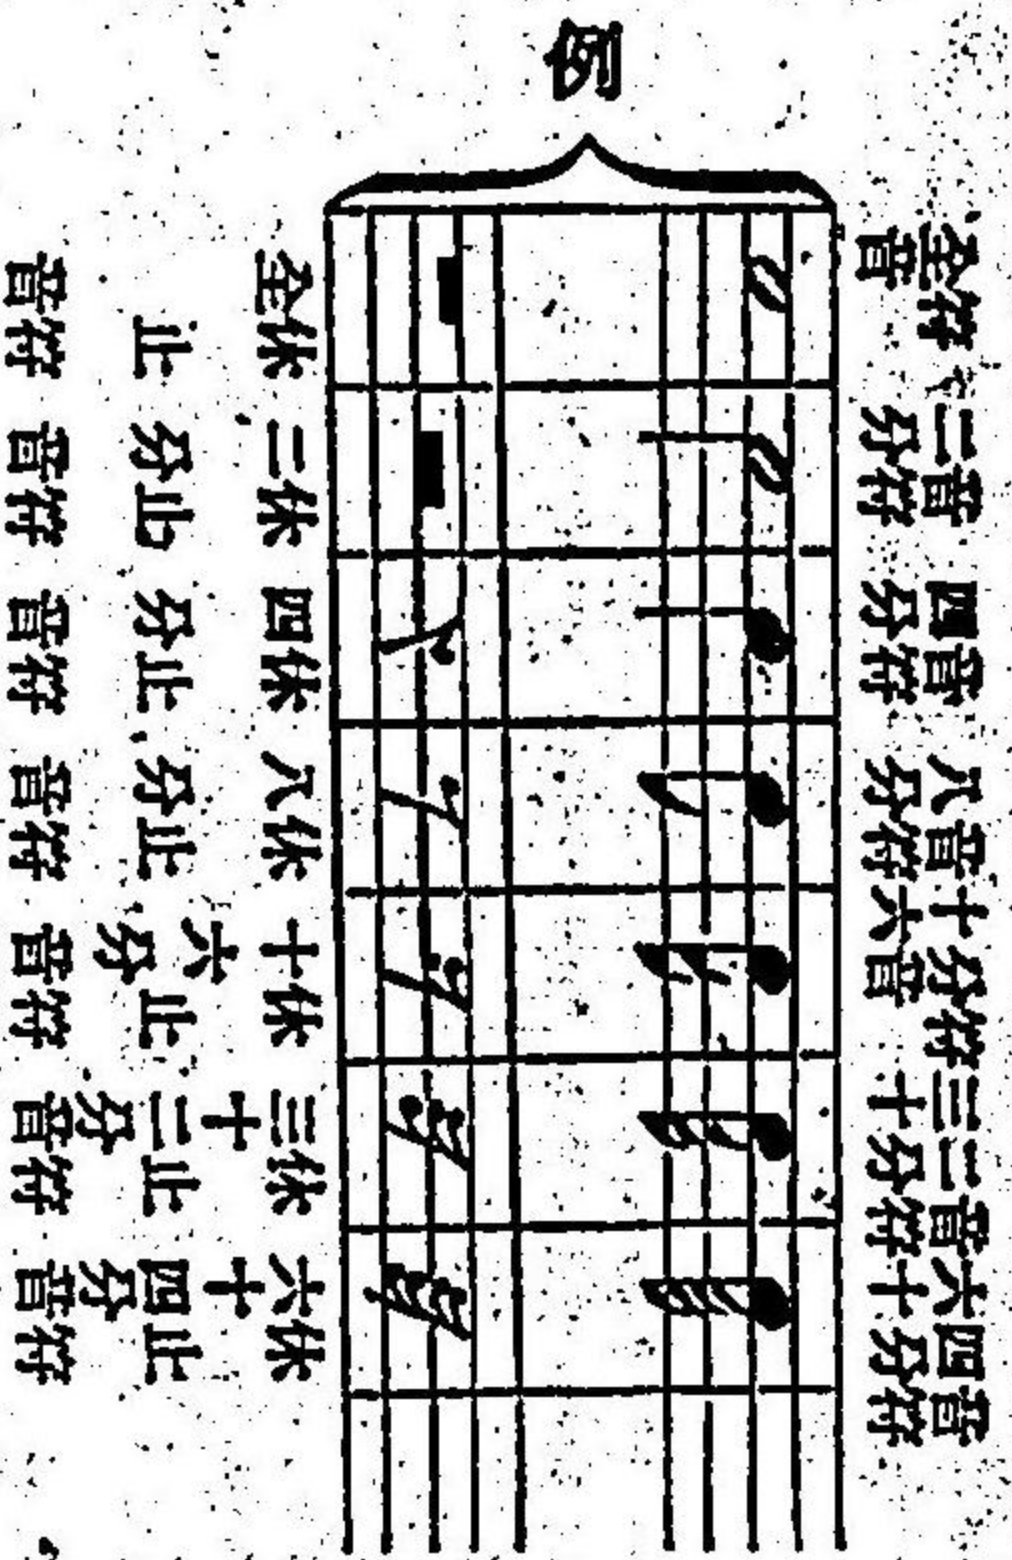 例
全音符
二分音符
四分音符
八分音符
十六分音符
三十二分音符
六十四分音符
全音休止符
二分音休止符
四分音休止符
八分音休止符
十六分音休止符
三十二分音休止符
六十四分音休止符